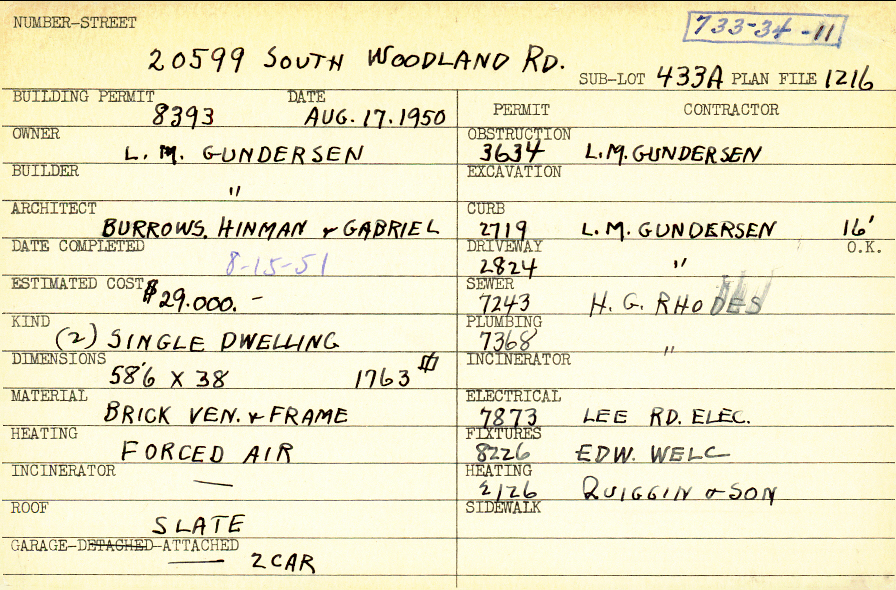 NUMBER-STREET
733-34-11
20599 SOUTH WOODLAND RD.
SUB-LOT 433A PLAN FILE 1216
BUILDING PERMIT DATE
8393 AUG. 17. 1950
OWNER
L. M. GUNDERSEN
BUILDER
"
ARCHITECT
BURROWS. HINMAN & GABRIEL
DATE COMPLETED
8-15-51
ESTIMATED COST
$29.000. -
KIND
(2) SINGLE DWELLING
DIMENSIONS
58'6 X 38 1763
MATERIAL
BRICK VEN. & FRAME
HEATING
FORCED AIR
INCINERATOR
—
ROOF
SLATE
GARAGE-DETACHED-ATTACHED
2 CAR
PERMIT CONTRACTOR
OBSTRUCTION
3634 L.M. GUNDERSEN
EXCAVATION
CURB
2719 L. M. GUNDERSEN 16'
DRIVEWAY O.K.
2824 "
SEWER
7243 H. G. RHODES
PLUMBING
7368 "
INCINERATOR
ELECTRICAL
7873 LEE RD. ELEC.
FIXTURES
8226 EDW. WELC
HEATING
2126 QUIGGIN & SON
SIDEWALK